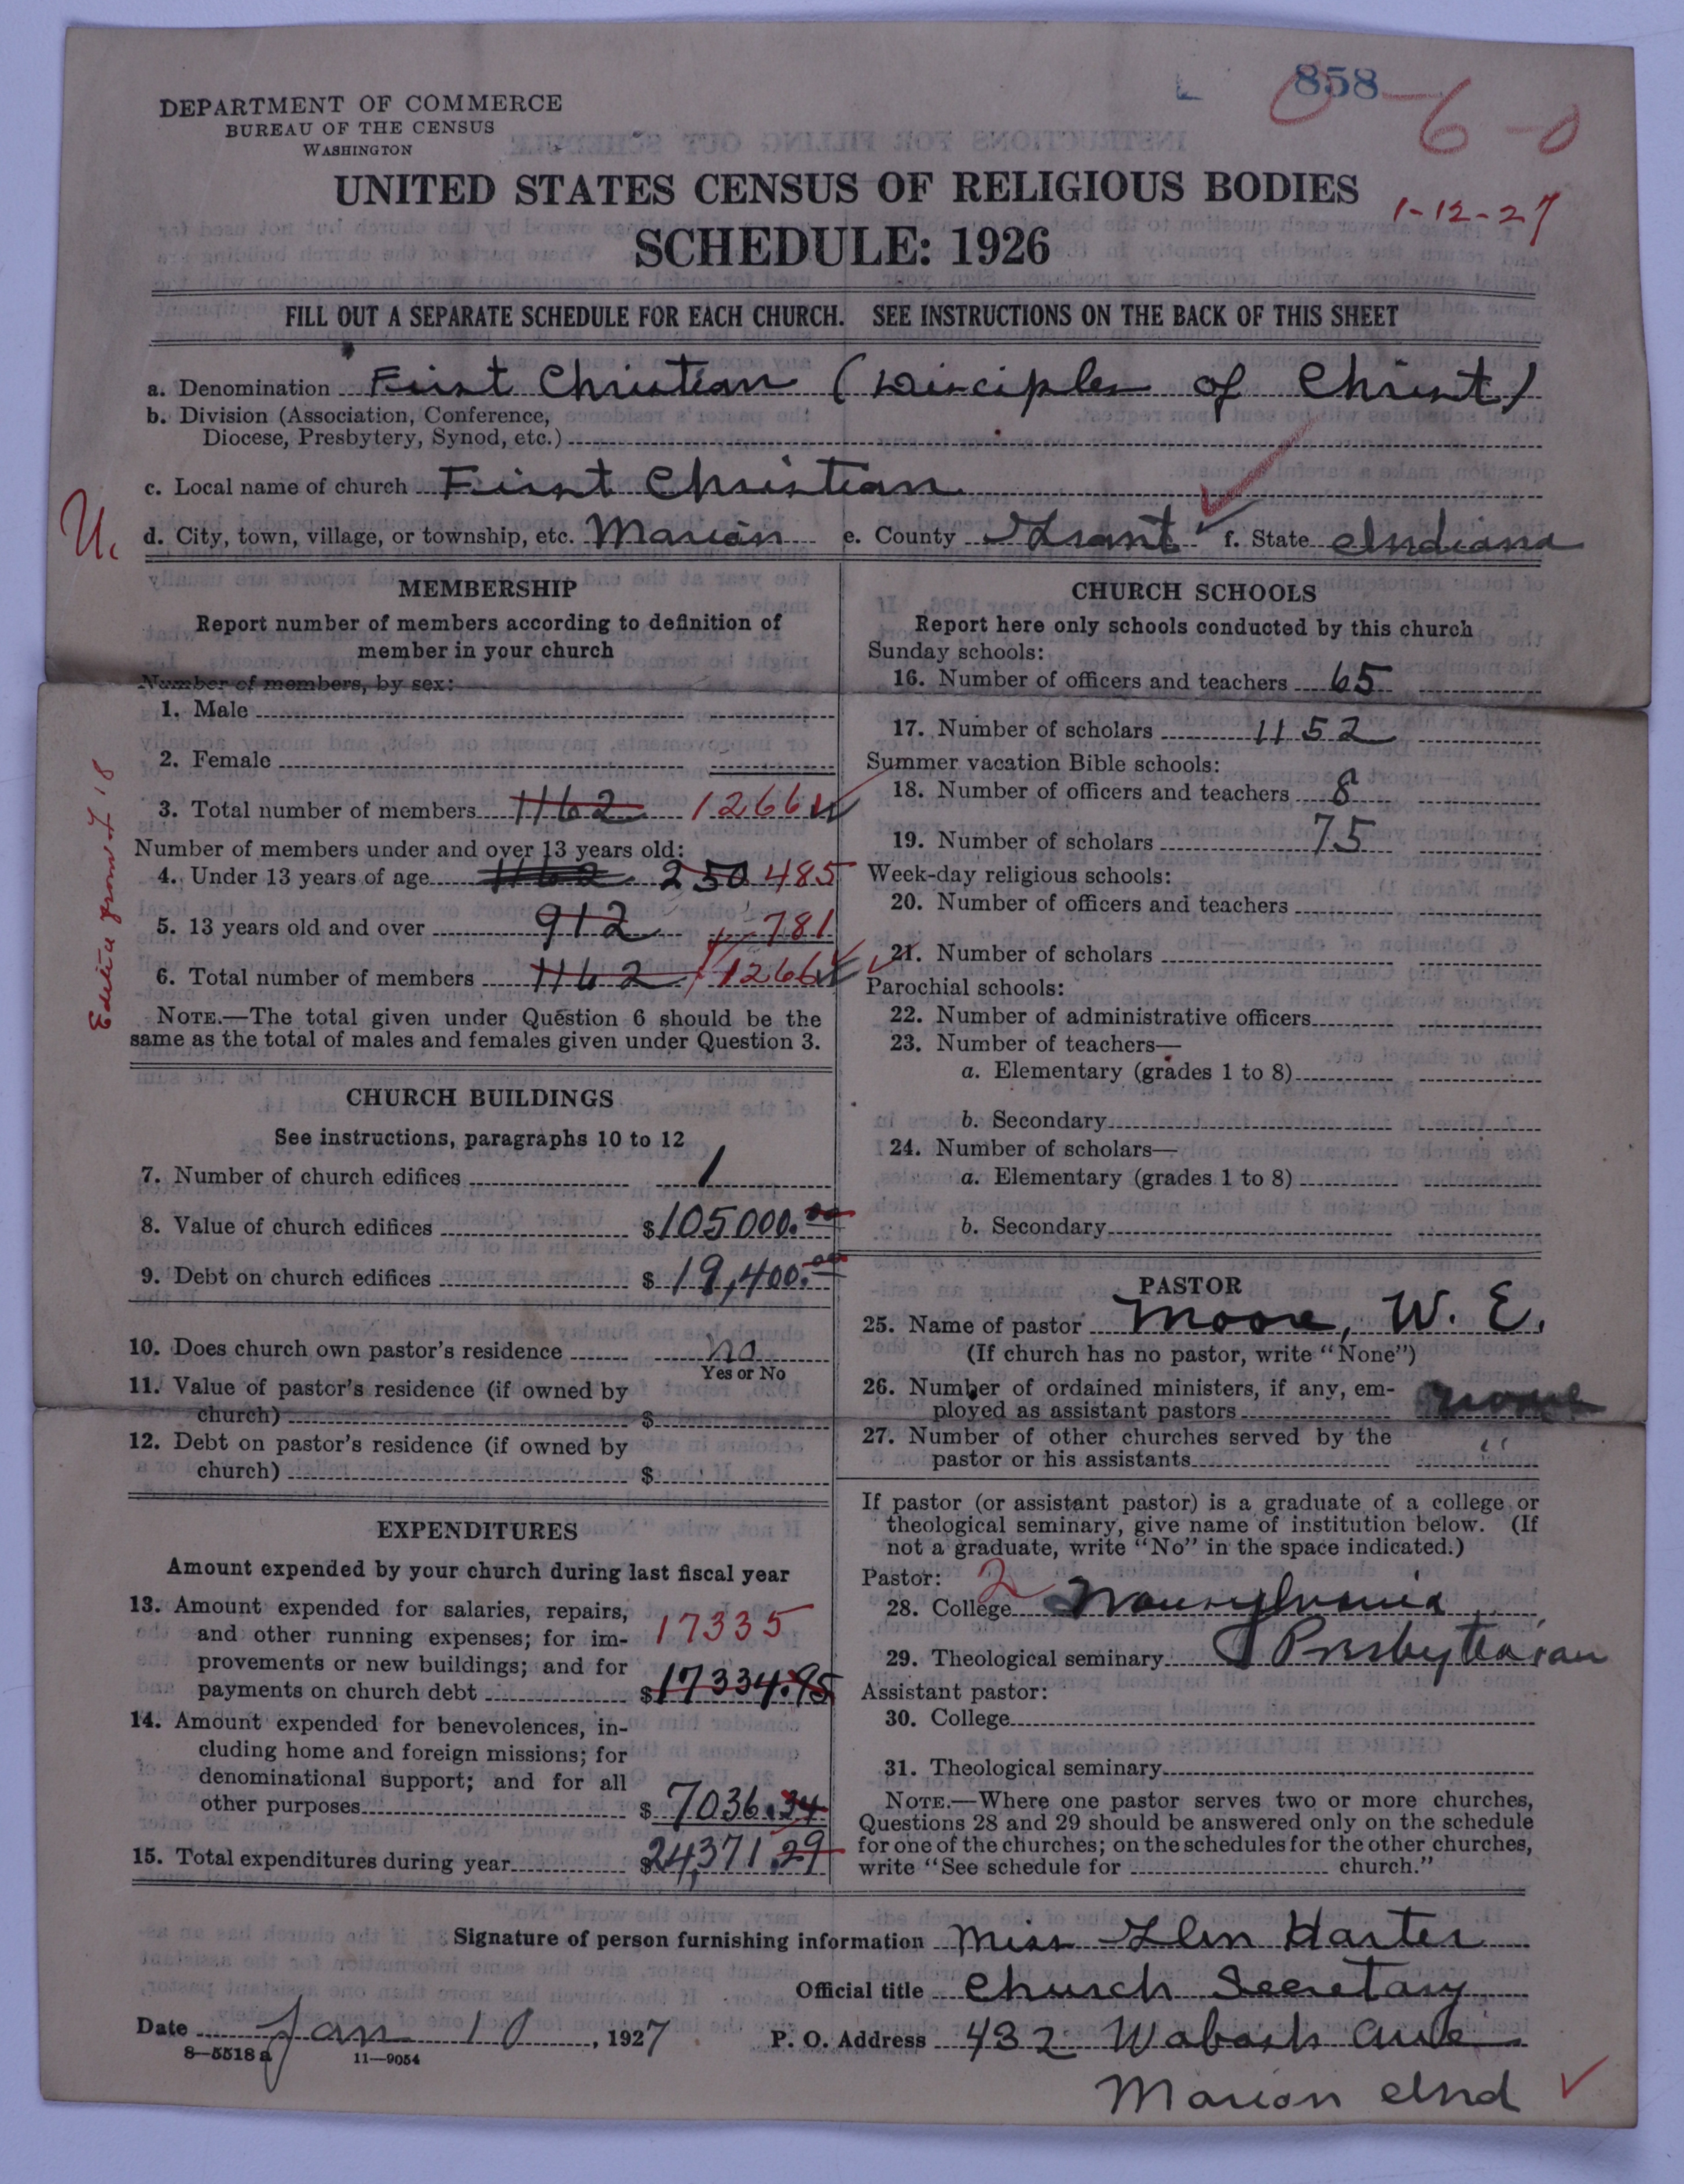 858
0-6-0
DEPARTMENT OF COMMERCE
BUREAU OF THE CENSUS
WASHINGTON
UNITED STATES CENSUS OF RELIGIOUS BODIES
1-12-27
SCHEDULE: 1926
FILL OUT A SEPARATE SCHEDULE FOR EACH CHURCH. SEE INSTRUCTIONS ON THE BACK OF THIS SHEET
a. Denomination First Christian (Disciples of Christ)
b. Division (Association, Conference,
Diocese, Presbytery, Synod, etc.)
c. Local name of church First Christian
U.
d. City, town, village, or township, etc. Marion e. County Grant f. State Indiana
MEMBERSHIP
Report number of members according to definition of
member in your church
Number of members, by sex:
1. Male
2. Female
3. Total number of members 1162 1266
Number of members under and over 13 years old:
4. Under 13 years of age 1162 250 485
5. 13 years old and over 912 781
6. Total number of members 1162 1266
NOTE.—The total given under Question 6 should be the
same as the total of males and females given under Question 3.
CHURCH BUILDINGS
See instructions, paragraphs 10 to 12
7. Number of church edifices 1
8. Value of church edifices $105000.00
9. Debt on church edifices $ 19,400.00
10. Does church own pastor's residence no
Yes or No
11. Value of pastor's residence (if owned by
church) $
12. Debt on pastor's residence (if owned by
church) $
EXPENDITURES
Amount expended by your church during last fiscal year
13. Amount expended for salaries, repairs,
and other running expenses; for im- 17335
provements or new buildings; and for
payments on church debt $17334.95
14. Amount expended for benevolences, in-
cluding home and foreign missions; for
denominational support; and for all
other purposes $ 7036.34
15. Total expenditures during year $24,371.29
CHURCH SCHOOLS
Report here only schools conducted by this church
Sunday schools:
16. Number of officers and teachers 65
17. Number of scholars 1152
Summer vacation Bible schools:
18. Number of officers and teachers 8
19. Number of scholars 75
Week-day religious schools:
20. Number of officers and teachers
21. Number of scholars
Parochial schools:
22. Number of administrative officers
23. Number of teachers—
a. Elementary (grades 1 to 8)
b. Secondary
24. Number of scholars—
a. Elementary (grades 1 to 8)
b. Secondary
PASTOR
25. Name of pastor Moore, W. E.
(If church has no pastor, write "None")
26. Number of ordained ministers, if any, em-
ployed as assistant pastors none
27. Number of other churches served by the
pastor or his assistants "
If pastor (or assistant pastor) is a graduate of a college or
theological seminary, give name of institution below. (If
not a graduate, write "No" in the space indicated.)
Pastor: 2
28. College
29. Theological seminary Presbyterian
Assistant pastor:
30. College
31. Theological seminary
NOTE.—Where one pastor serves two or more churches,
Questions 28 and 29 should be answered only on the schedule
for one of the churches; on the schedules for the other churches,
write "See schedule for church."
Signature of person furnishing information Miss Glen Harter
Official title Church Secretary
Date Jan 10, 1927 P. O. Address 432 Wabash Ave
8—5518a 11—9054
Marion Ind